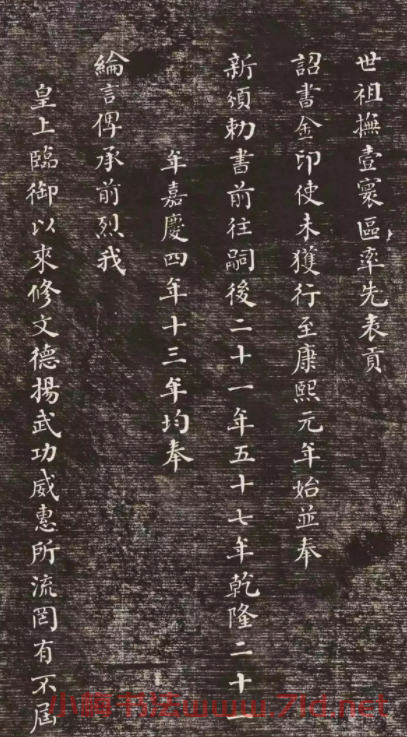 世祖撫壹寰區率先表貢
詔書金印使未獲行至康熙元年始並奉
新頒勅書前往嗣後二十一年五十七年乾隆二十一
年嘉慶四年十三年均奉
綸言俾承前烈我
皇上臨御以來修文德揚武功威惠所流罔有不屆
www.7td.net